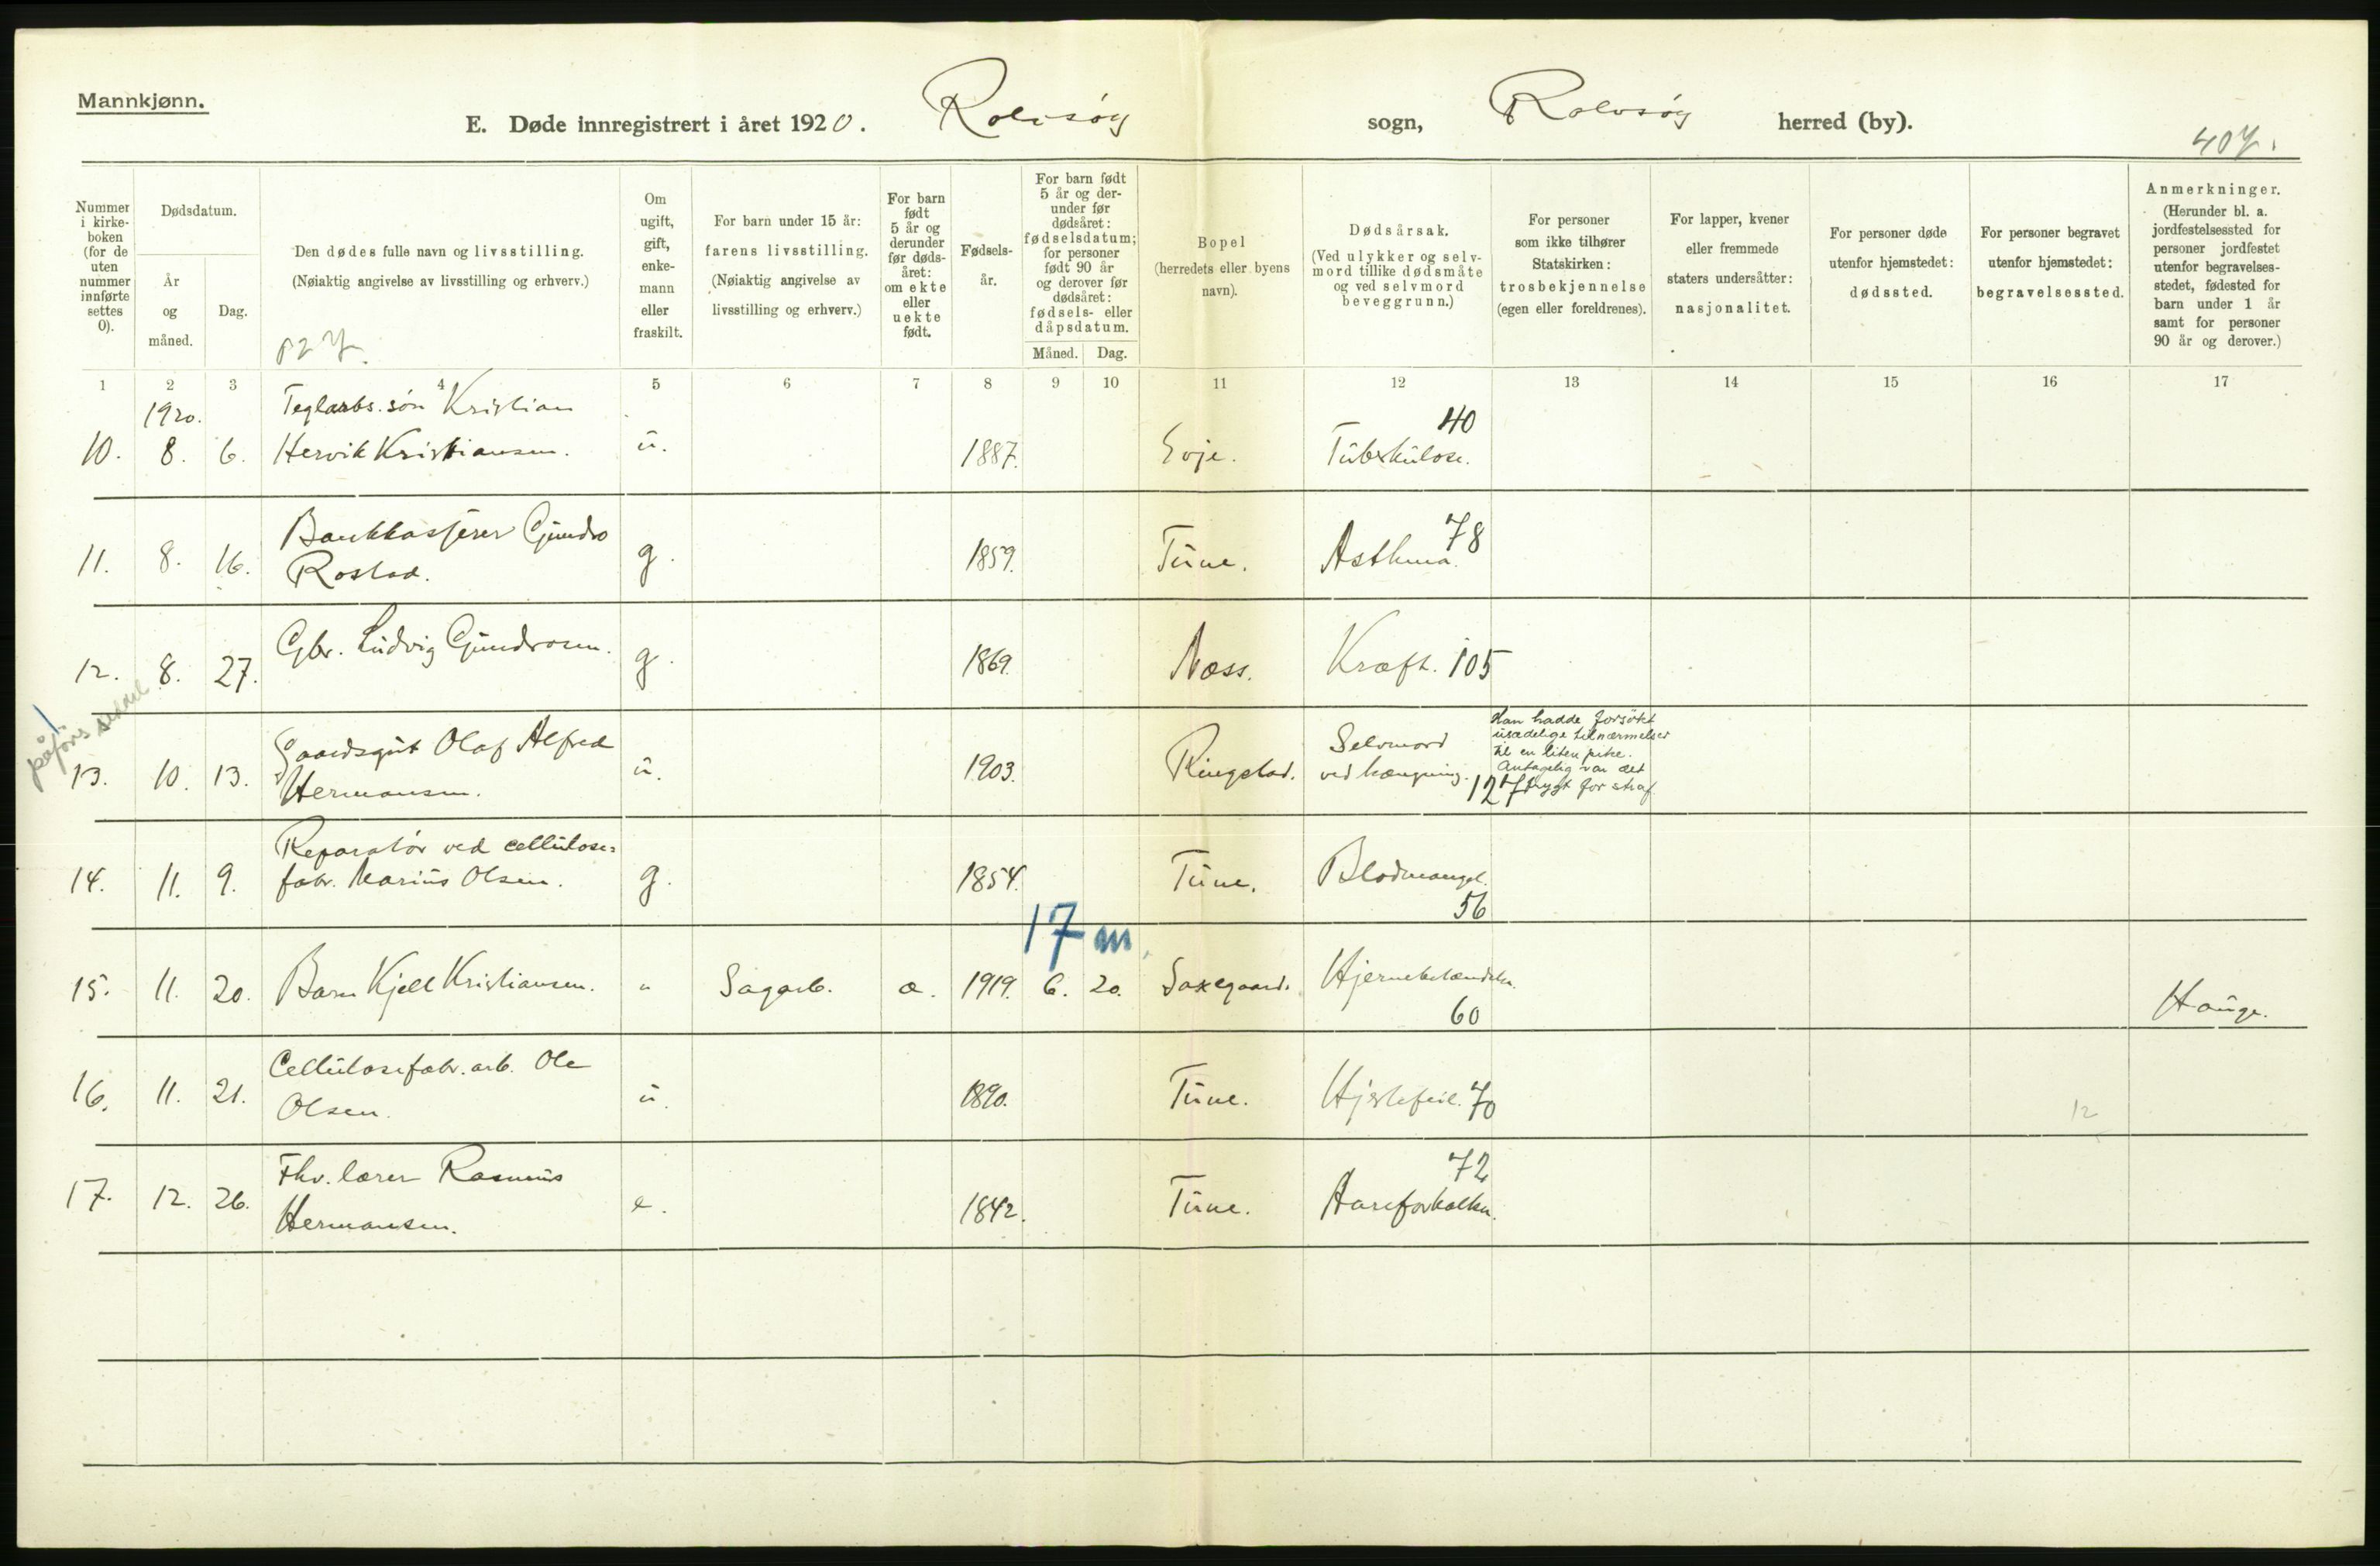 Mannkjønn.
E. Døde innregistrert i året 1920. Rolvsøy sogn, Rolvsøy herred (by).
407.
Nummer i kirke-boken (for de uten nummer innførte settes 0).
Dødsdatum.
År og måned.
Dag.
Den dødes fulle navn og livsstilling.
(Nøiaktig angivelse av livsstilling og erhverv.)
Om ugift, gift, enke-mann eller fraskilt.
For barn under 15 år:
farens livsstilling.
(Nøiaktig angivelse av livsstilling og erhverv.)
For barn født 5 år og derunder før døds-året: om ekte eller uekte født.
Fødsels-år.
For barn født 5 år og der-under før dødsåret: fødselsdatum; for personer født 90 år og derover før dødsåret: fødsels- eller dåpsdatum.
Måned. Dag.
Bopel
(herredets eller byens navn).
Dødsårsak.
(Ved ulykker og selv-mord tillike dødsmåte og ved selvmord beveggrunn.)
For personer som ikke tilhører Statskirken: trosbekjennelse (egen eller foreldrenes).
For lapper, kvener eller fremmede staters undersåtter: nasjonalitet.
For personer døde utenfor hjemstedet: dødssted.
For personer begravet utenfor hjemstedet: begravelsessted.
Anmerkninger.
(Herunder bl. a. jordfestelsessted for personer jordfestet utenfor begravelses-stedet, fødested for barn under 1 år samt for personer 90 år og derover.)
1 2 3 4 5 6 7 8 9 10 11 12 13 14 15 16 17
1920. Teglarbs. søn Kristian 40
10. 8. 6. Hervik Kristiansen. u. 1887. Evje. Tuberkulose.
Bankkasserer Gundro 78
11. 8. 16. Rostad. g. 1859. Tune. Asthma.
12. 8. 27. Gbr. Ludvig Gundrosen. g. 1869. Næss. Kræft. 105
påføres seddel
13. 10. 13. Gaardsgut Olaf Alfred
Hermansen. u. 1903. Ringstad. Selvmord
ved hængning. 127
Han hadde forsøkt
usædelige tilnærmelser
til en liten pike.
Antagelig var det
frygt for straf.
Reparatør ved cellulose=
14. 11. 9. fabr. Marius Olsen. g. 1854. Tune. Blodmangel.
56
17 m.
15. 11. 20. Barn Kjell Kristiansen. " Sagarb. æ. 1919. 6. 20. Saxegaard. Hjernebetændelse.
60 Hauge.
Cellulosefabr. arb. Ole
16. 11. 21. Olsen. u. 1890. Tune. Hjertefeil. 70
12
Fhv. lærer Rasmus 72
17. 12. 26. Hermansen. e. 1842. Tune. Aareforkalkn.